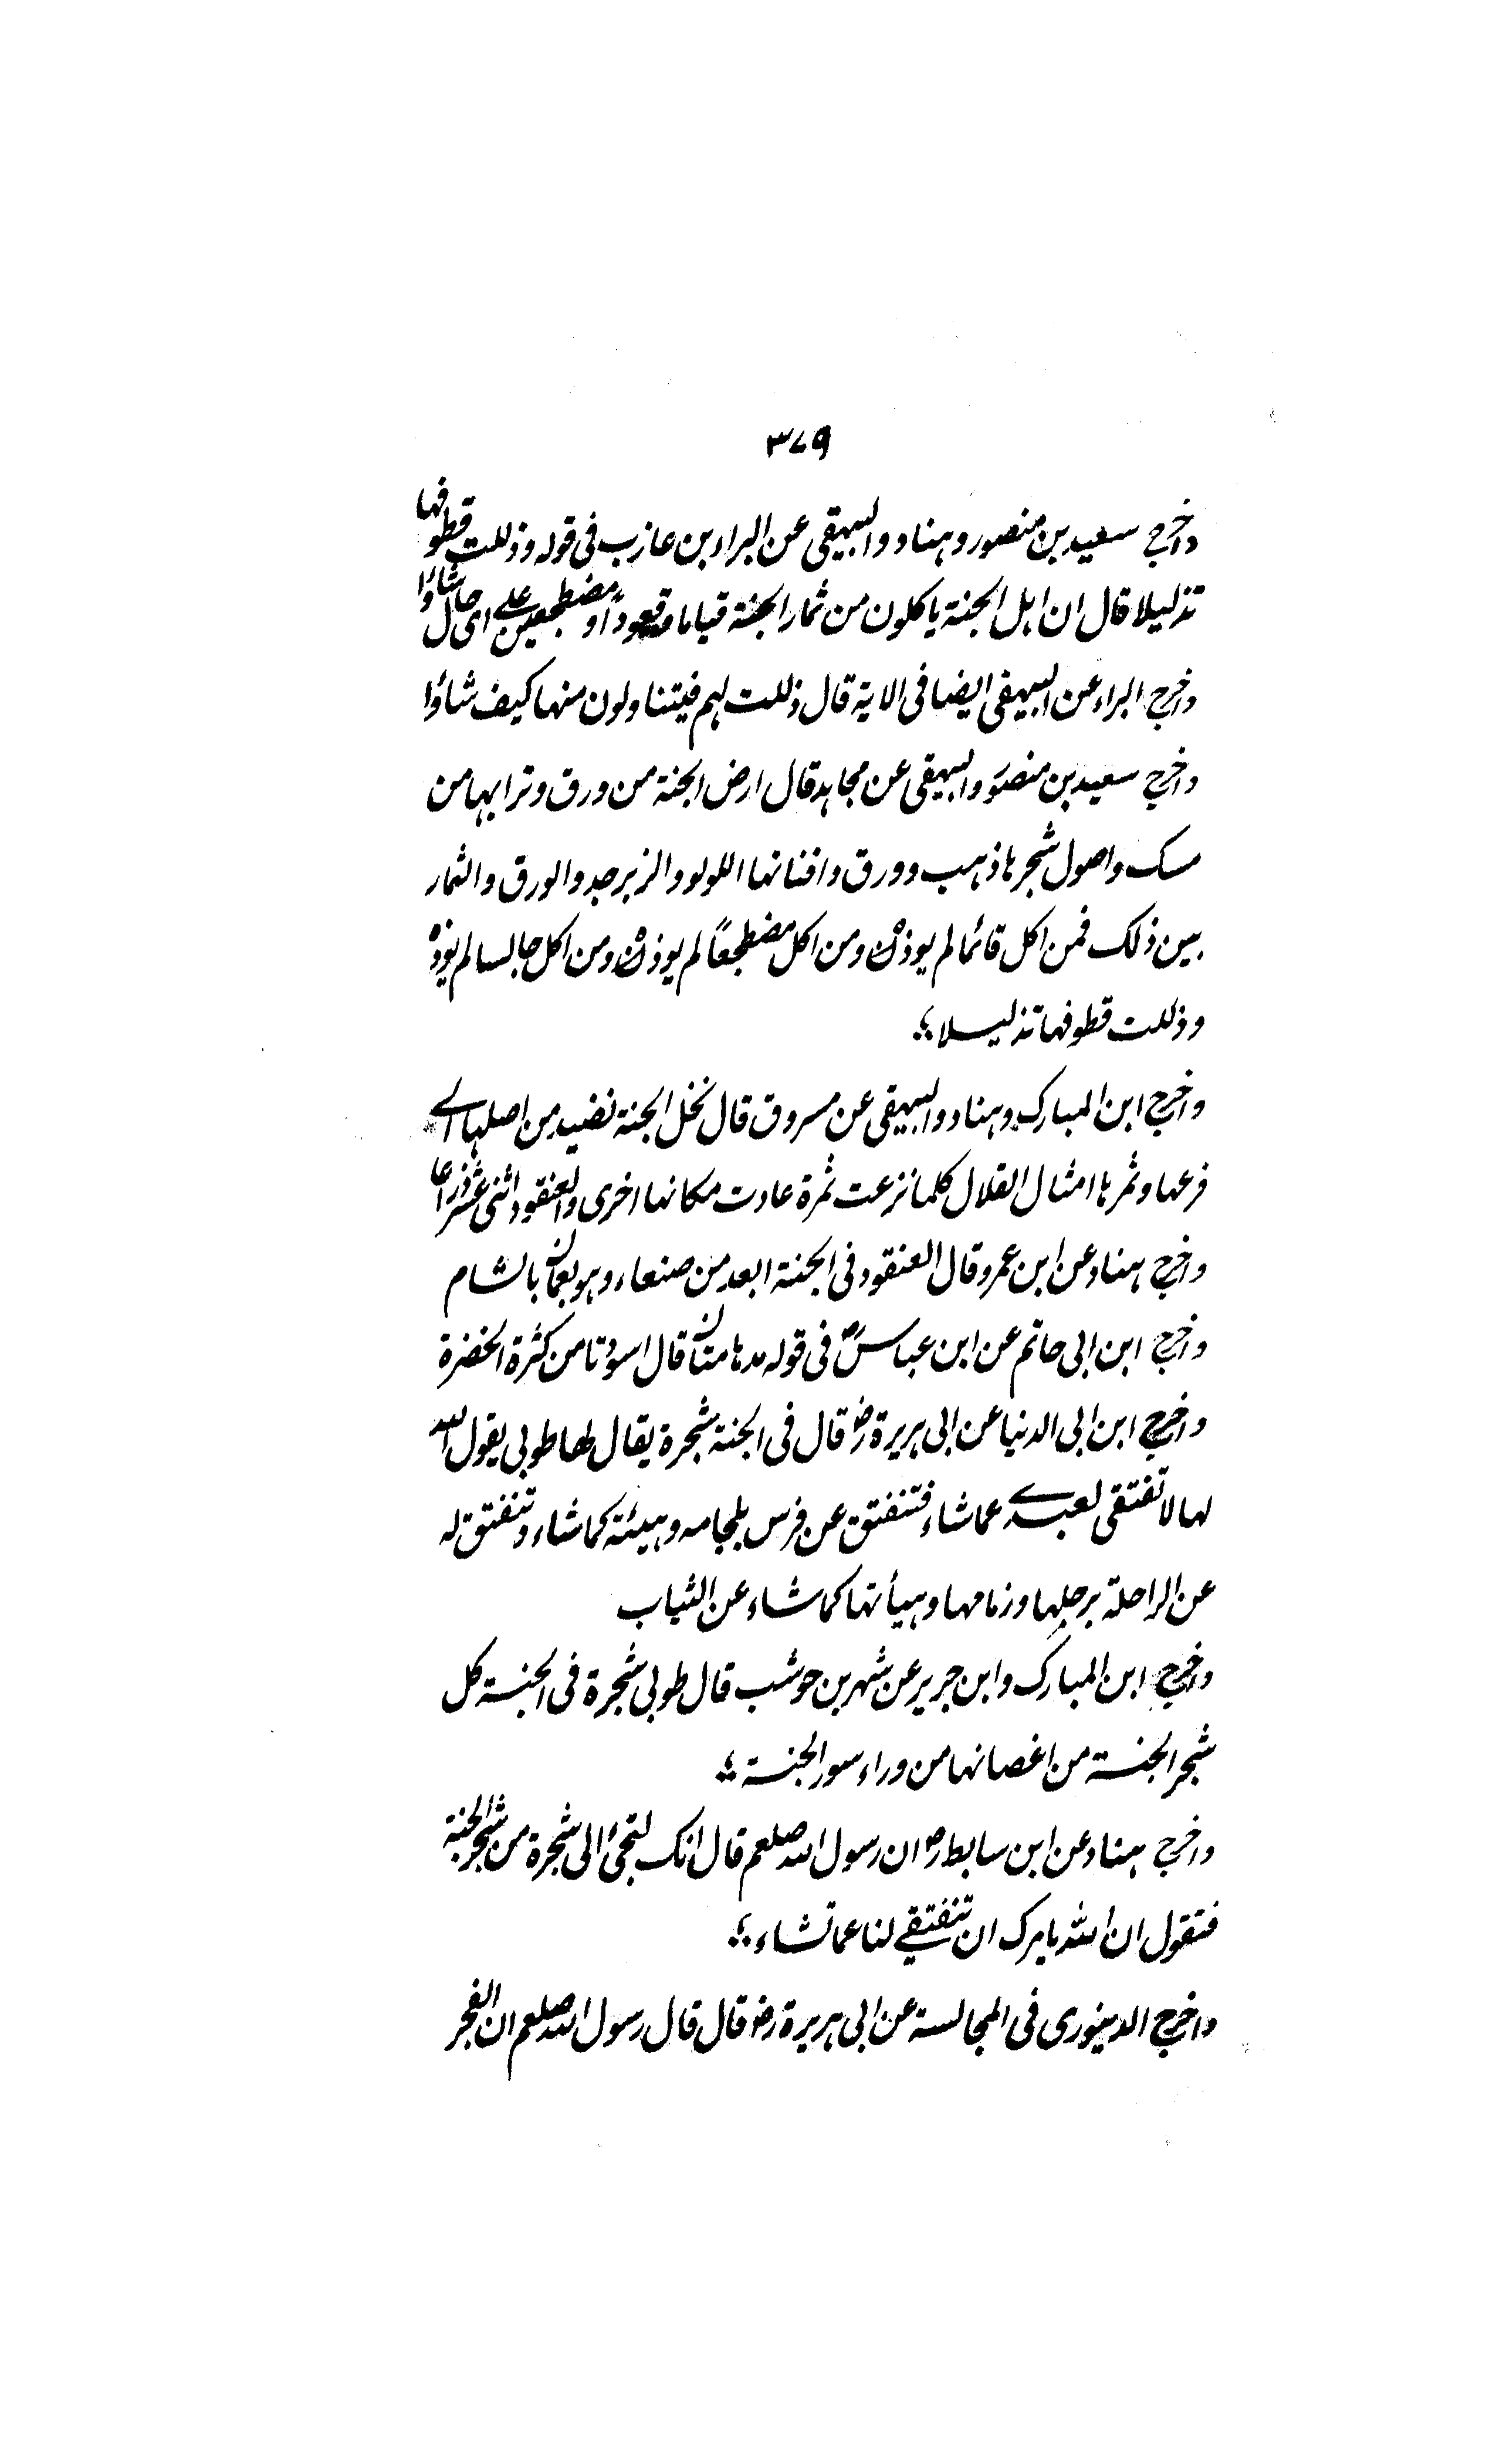 ٣٧٩
واخرج سعید بن منصور و هناد و البیهقی عن البراء بن عازب فی قوله و ذللت قطوفها
تذلیلا قال ان اهل الجنة یاکلون من ثمار الجنة قیاما و قعوداً او مضطجعین علے ای حال شاؤا
واخرج البراء عن البیهقی ایضا فی الایة قال ذللت لهم فیتناولون منها کیف شاؤا
واخرج سعید بن منصور و البیهقی عن مجاهد قال ارض الجنة من ورق و ترابها من
مسک و اصول شجرها ذهب و ورق و افنانها اللولو و الزبرجد و الورق و الثمار
بین ذلک فمن اکل قائما لم یوذه و من اکل مضطجعاً لم یوذه و من اکل جالسا لم یوذه
و ذللت قطوفها تذلیلا ؛
واخرج ابن المبارک و هناد و البیهقی عن مسروق قال نخل الجنة نضید من اصلها الے
فرعها و ثمرها امثال القلال کلما نزعت ثمرة عادت مکانها اخری و العنقود اثنی عشر ذراعا
واخرج هناد عن ابن عمرو قال العنقود فی الجنة ابعد من صنعاء و هو بعمان بالشام
واخرج ابن ابی حاتم عن ابن عباسؓ فی قوله مدهامتان قال اسودتا من کثرة الخضرة
واخرج ابن ابی الدنیا عن ابی هریرة رضؓ قال فی الجنة شجرة یقال لها طوبی یقول الله
لها لا تفتقی لعبدے عما شاء فتنفتق عن فرس بلجامه و هیئة کما شاء و تنفتق له
عن الراحلة برحلها و زمامها و هیأتها کما شاء عن الثیاب
واخرج ابن المبارک و ابن جریر عن شهر بن حوشب قال طوبی شجرة فی الجنة کل
شجر الجنة من اغصانها من وراء سور الجنة ؛
واخرج هناد عن ابن سابط رضؓ ان رسول الله صلعم قال انک لتجئ الی شجرة من شجر الجنة
فتقول ان الله یامرک ان تنفتقے لنا عما تشاء ؛
واخرج الدینوری فی المجالسة عن ابی هریرة رضؓ قال قال رسول الله صلعم ان الفجر